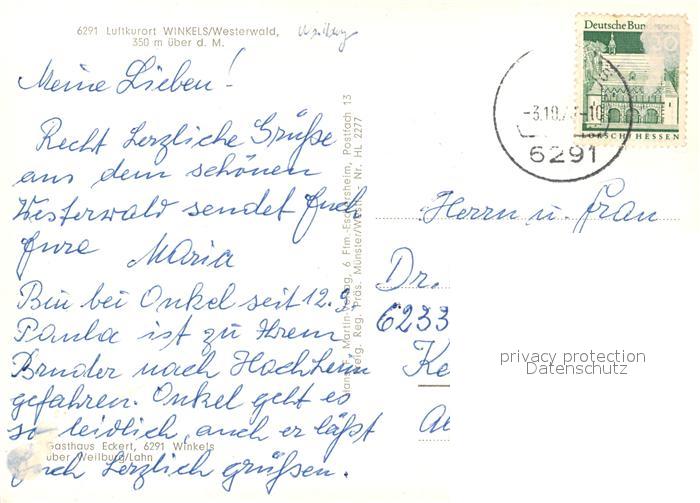 6291 Luftkurort WINKELS/Westerwald,
350 m über d. M.
Meine Lieben!
Recht herzliche Grüße
aus dem schönen
Westerwald sendet Euch
Eure Maria
Bin bei Onkel seit 12. 9.
Paula ist zu Ihrem
Bruder nach Hochheim
gefahren. Onkel geht es
so leidlich, auch er läßt
Euch herzlich grüßen.
Gasthaus Eckert, 6291 Winkels
über Weilburg/Lahn
Martin-Verlag, 6 Ffm.-Eschersheim, Postfach 13
Freig. Reg. Präs. Münster/Westf. Nr. HL 2277
Deutsche Bun
LORSCH/HESSEN
-3.10.7 -10
6291
Herrn u. Frau
Dr.
6233
Ke
privacy protection
Datenschutz